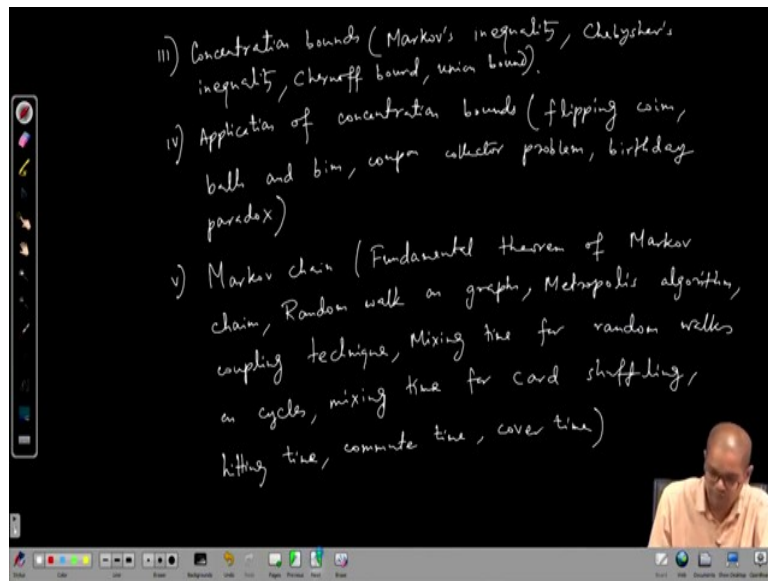 III) Concentration bounds (Markov's inequality, Chebyshev's
inequality, Chernoff bound, union bound).
IV) Application of concentration bounds (flipping coins,
balls and bins, coupon collector problem, birthday
paradox)
V) Markov chain (Fundamental theorem of Markov
chain, Random walk on graph, Metropolis algorithm,
coupling technique, Mixing time for random walks
on cycles, mixing time for card shuffling,
hitting time, commute time, cover time)
Color
Line
Eraser
Backgrounds
Undo
Pages
Previous
Next
Erase
Documents